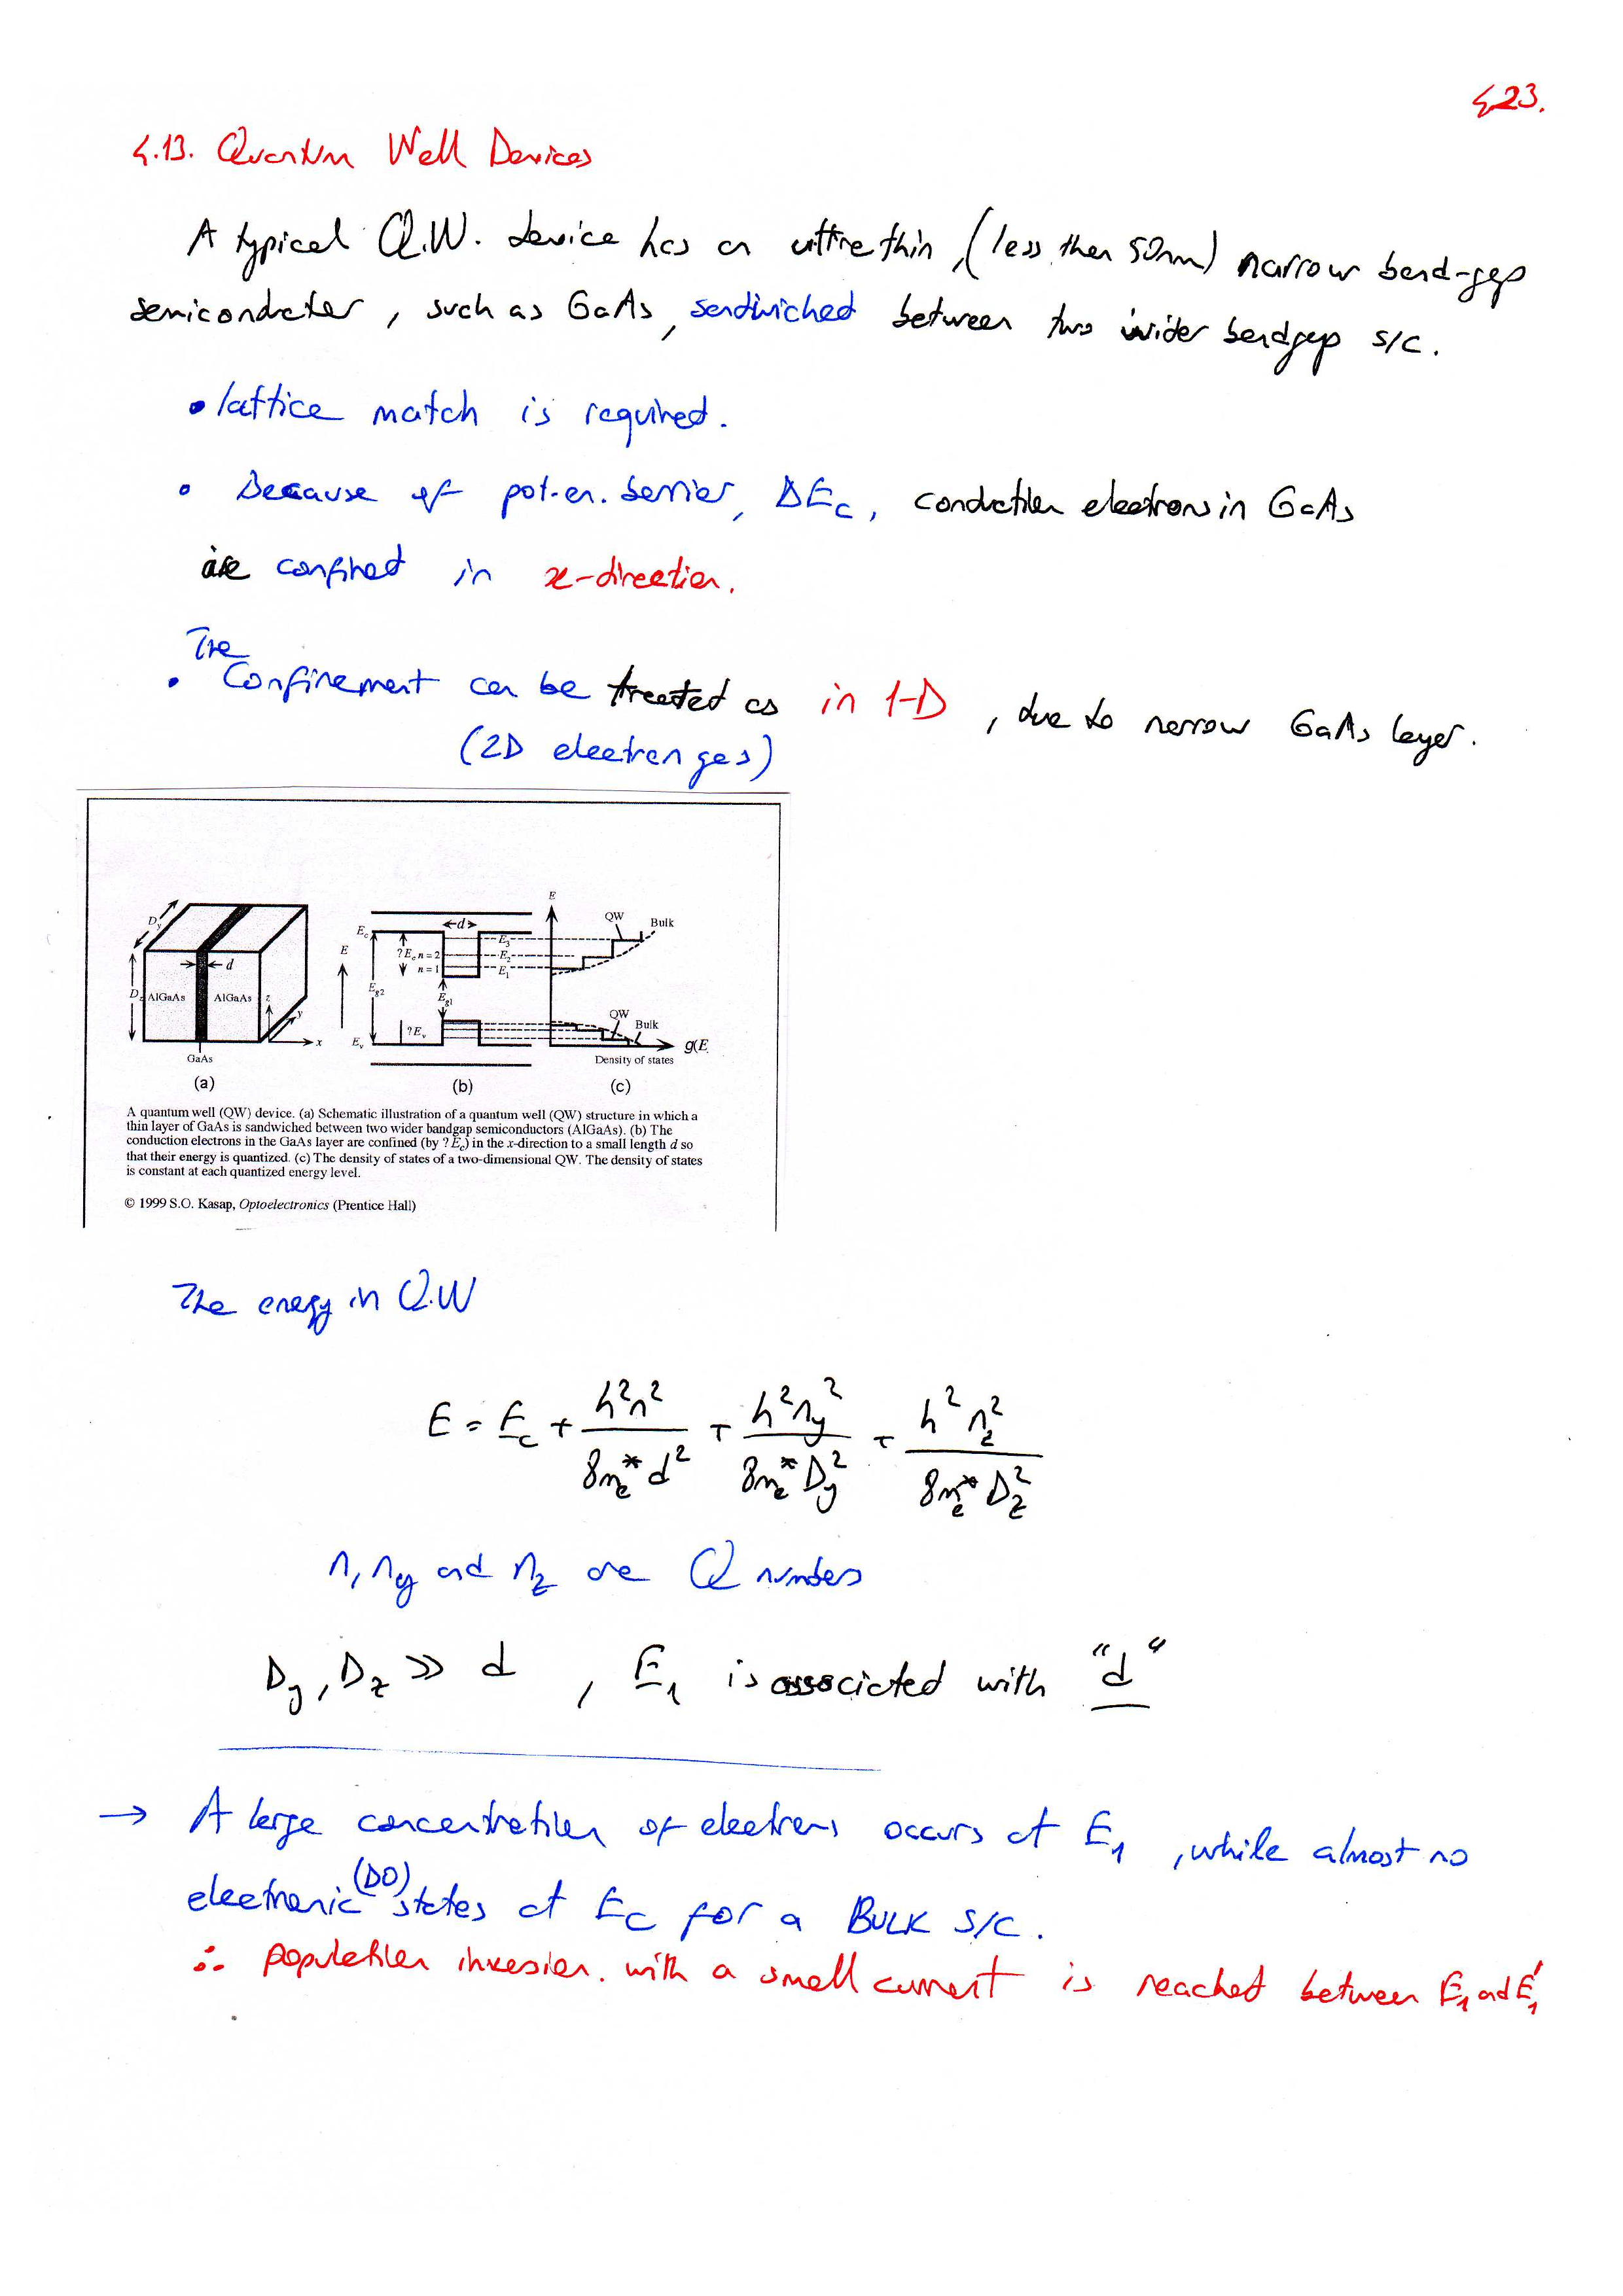 423.
4.13. Quantum Well Devices
A typical Q.W. device has an ultra thin, (less then 50nm) narrow band-gap
semiconductor, such as GaAs, sandwiched between two wider bandgap s/c.
• lattice match is required.
• Because of pot.en. barrier, ΔEc, conduction electrons in GaAs
are confined in x-direction.
The
• Confinement can be treated as in 1-D, due to narrow GaAs layer.
(2D electron gas)
E
QW
Bulk
Dy
Ec
d
E3
E
?Ec n=2
E2
d
n=1
E1
Dz AlGaAs AlGaAs z
Eg2
Eg1
y
QW
Bulk
?Ev
x
Ev
g(E
GaAs
Density of states
(a) (b) (c)
A quantum well (QW) device. (a) Schematic illustration of a quantum well (QW) structure in which a
thin layer of GaAs is sandwiched between two wider bandgap semiconductors (AlGaAs). (b) The
conduction electrons in the GaAs layer are confined (by ? Ec) in the x-direction to a small length d so
that their energy is quantized. (c) The density of states of a two-dimensional QW. The density of states
is constant at each quantized energy level.
© 1999 S.O. Kasap, Optoelectronics (Prentice Hall)
The energy in Q.W
E = Ec + h²n²/8me*d² + h²ny²/8me*Dy² + h²nz²/8me*Dz²
n, ny and nz are Q numbers
Dy, Dz >> d , E1 is associated with "d"
→ A large concentration of electrons occurs at E1, while almost no
electronic (DO) states at Ec for a BULK s/c.
∴ population invesion. with a small current is reached between E1 and E1'